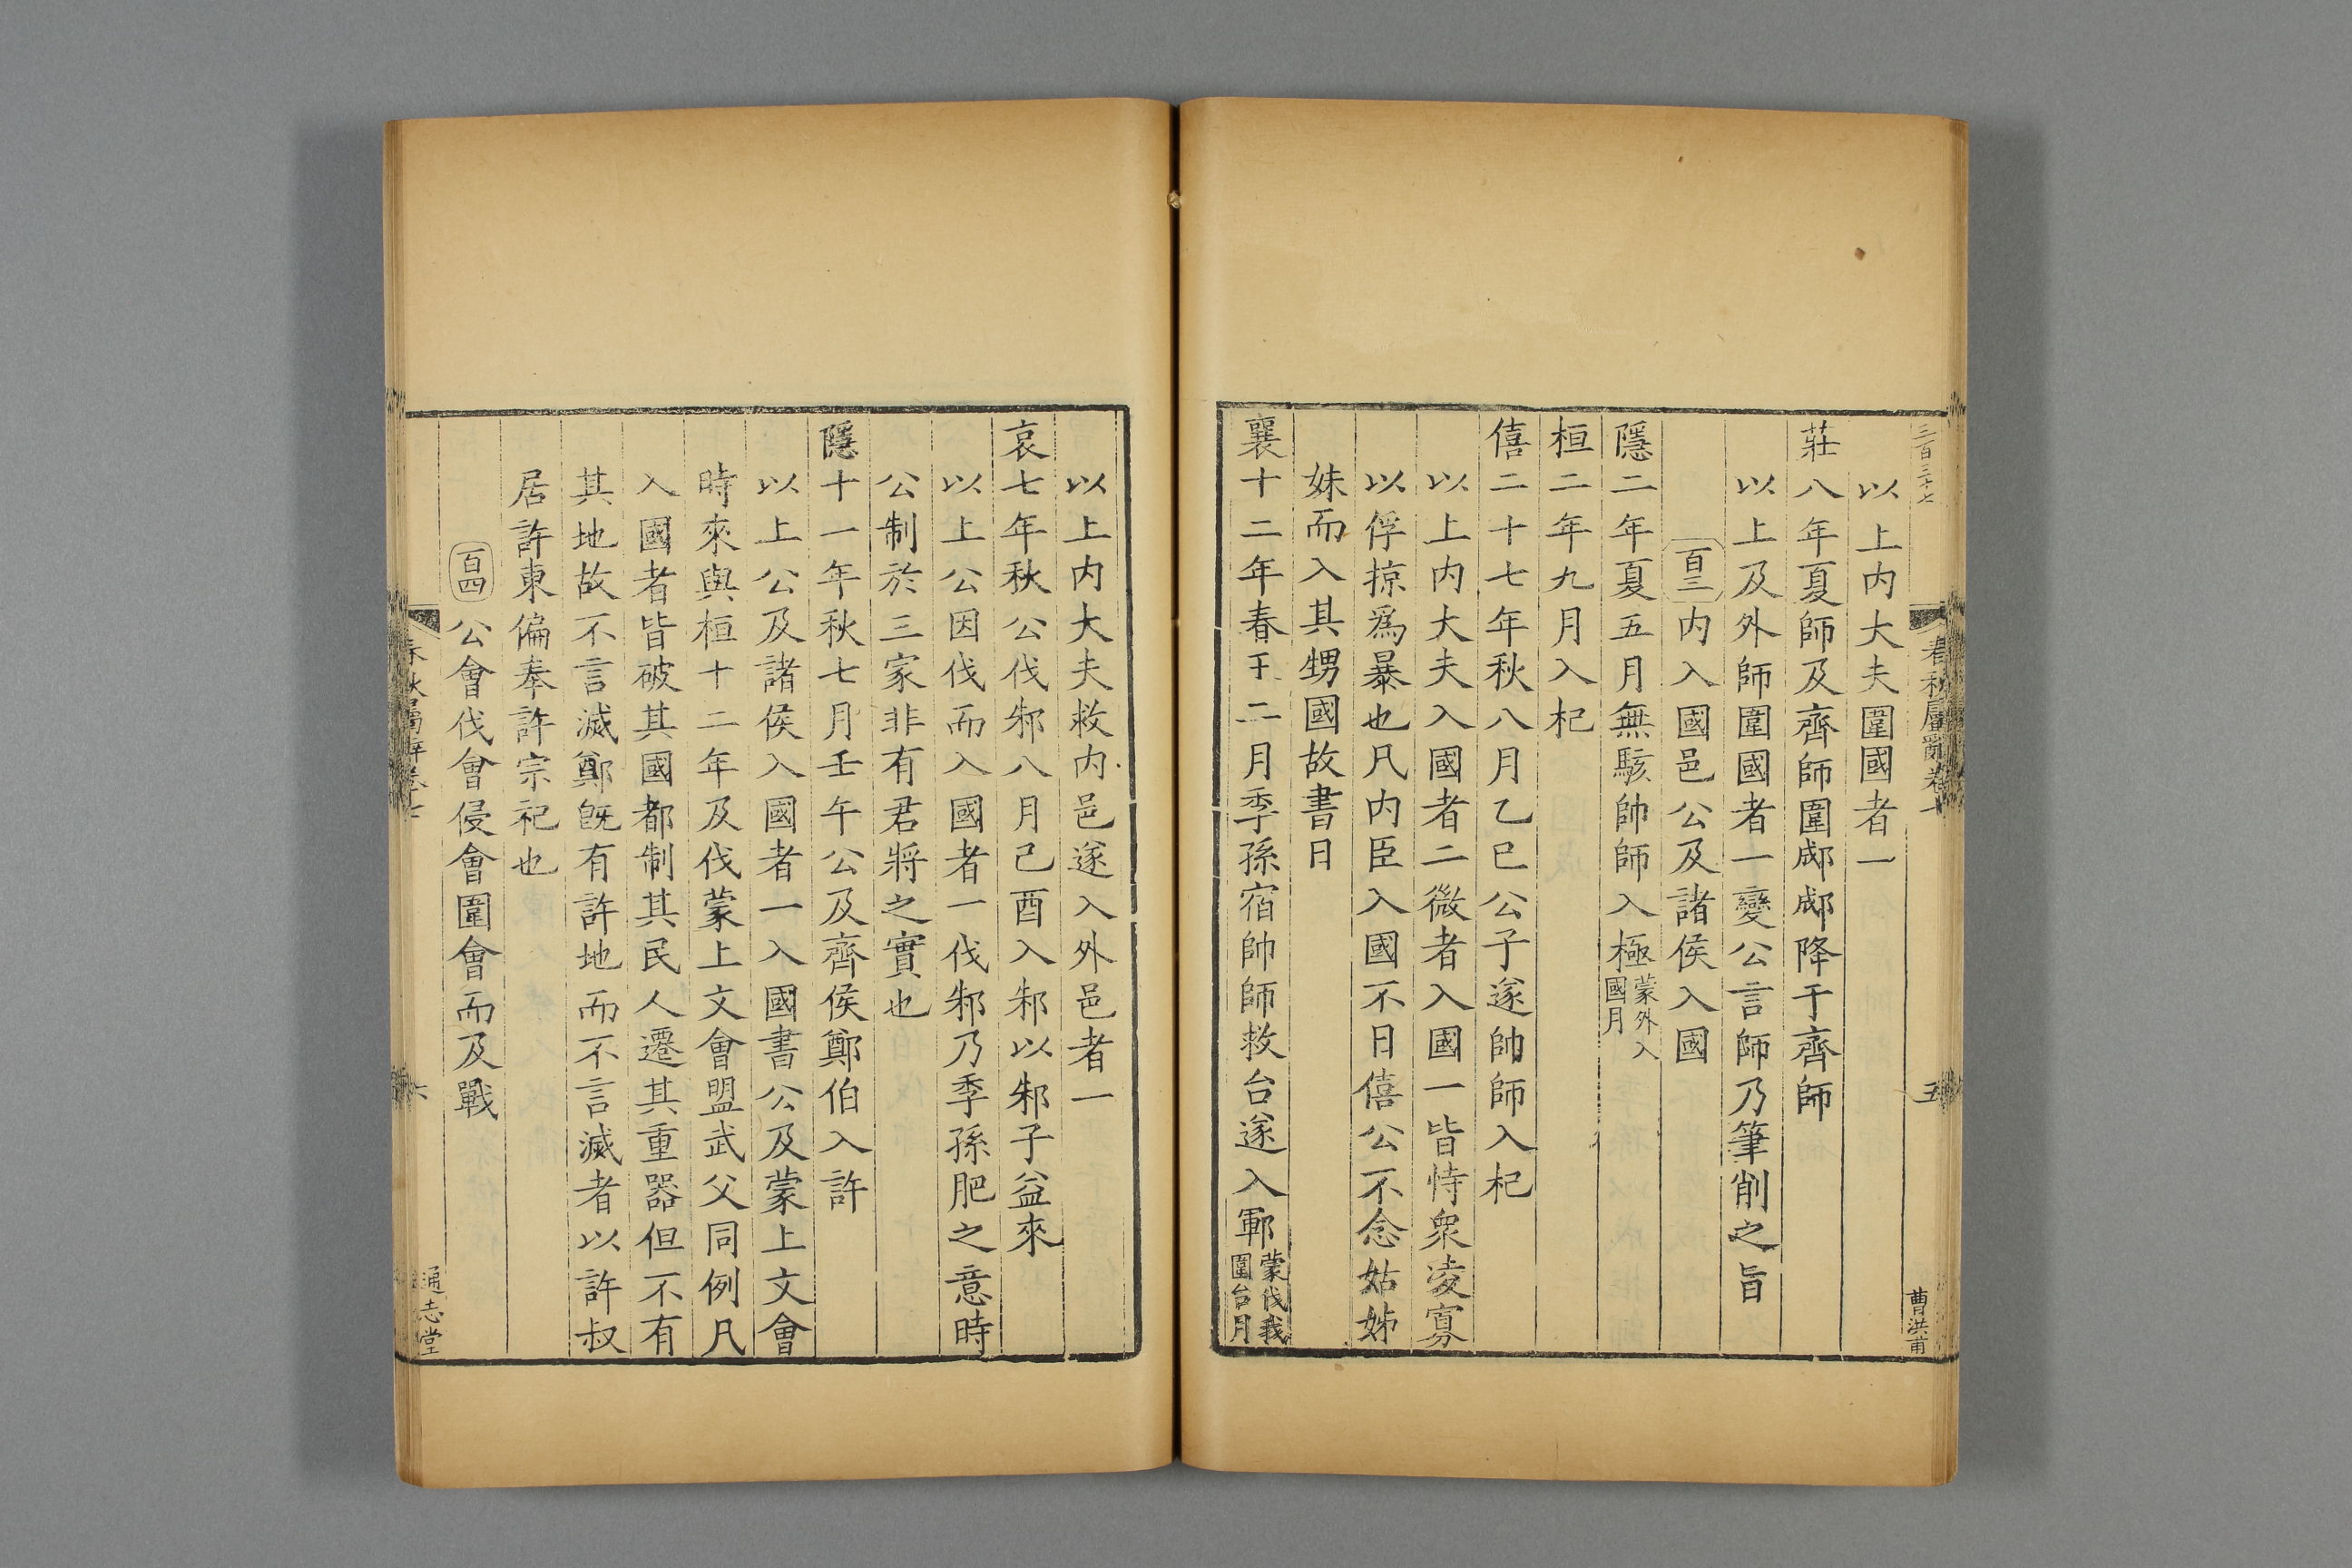 三百三十七
春秋屬辭卷七
五
曹洪甫
以上内大夫圍國者一
莊八年夏師及齊師圍郕郕降于齊師
以上及外師圍國者一變公言師乃筆削之旨
百三内入國邑公及諸侯入國
隱二年夏五月無駭帥師入極蒙外入國月
桓二年九月入杞
僖二十七年秋八月乙巳公子遂帥師入杞
以上内大夫入國者二微者入國一皆恃衆凌寡
以俘掠爲暴也凡内臣入國不日僖公不念姑姊
妹而入其甥國故書日
襄十二年春王二月季孫宿帥師救台遂入鄆蒙伐我圍台月
以上内大夫救内邑遂入外邑者一
哀七年秋公伐邾八月己酉入邾以邾子益來
以上公因伐而入國者一伐邾乃季孫肥之意時
公制於三家非有君將之實也
隱十一年秋七月壬午公及齊侯鄭伯入許
以上公及諸侯入國者一入國書公及蒙上文會
時來與桓十二年及伐蒙上文會盟武父同例凡
入國者皆破其國都制其民人遷其重器但不有
其地故不言滅鄭旣有許地而不言滅者以許叔
居許東偏奉許宗祀也
百四公會伐會侵會圍會而及戰
春秋屬辭卷七
六
通志堂